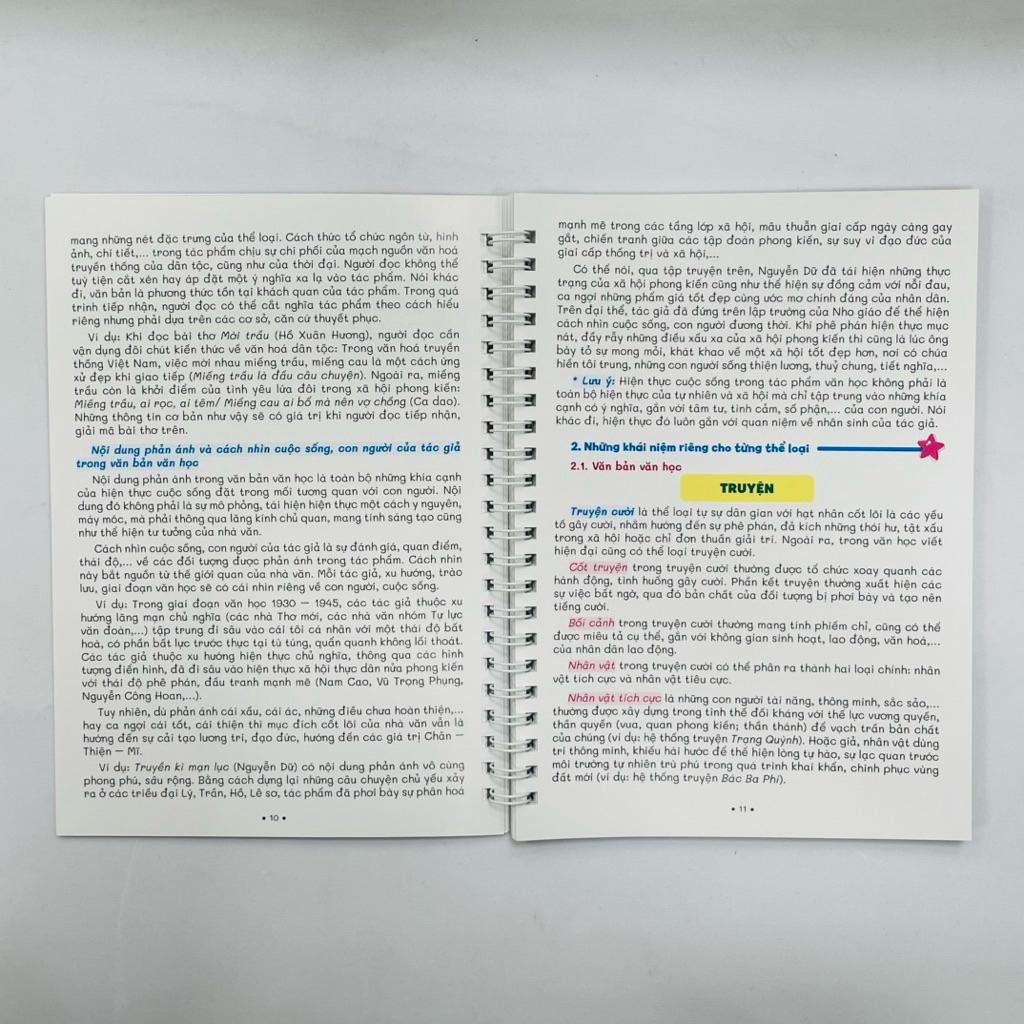 mang những nét đặc trưng của thể loại. Cách thức tổ chức ngôn từ, hình
ảnh, chi tiết,... trong tác phẩm chịu sự chi phối của mạch nguồn văn hoá
truyền thống của dân tộc, cũng như của thời đại. Người đọc không thể
tuỳ tiện cắt xén hay áp đặt một ý nghĩa xa lạ vào tác phẩm. Nói khác
đi, văn bản là phương thức tồn tại khách quan của tác phẩm. Trong quá
trình tiếp nhận, người đọc có thể cắt nghĩa tác phẩm theo cách hiểu
riêng nhưng phải dựa trên các cơ sở, căn cứ thuyết phục.
Ví dụ: Khi đọc bài thơ Mời trầu (Hồ Xuân Hương), người đọc cần
vận dụng đôi chút kiến thức về văn hoá dân tộc: Trong văn hoá truyền
thống Việt Nam, việc mời nhau miếng trầu, miếng cau là một cách ứng
xử đẹp khi giao tiếp (Miếng trầu là đầu câu chuyện). Ngoài ra, miếng
trầu còn là khởi điểm của tình yêu lứa đôi trong xã hội phong kiến:
Miếng trầu, ai rọc, ai têm/ Miếng cau ai bổ mà nên vợ chồng (Ca dao).
Những thông tin cơ bản như vậy sẽ có giá trị khi người đọc tiếp nhận,
giải mã bài thơ trên.
Nội dung phản ánh và cách nhìn cuộc sống, con người của tác giả
trong văn bản văn học
Nội dung phản ánh trong văn bản văn học là toàn bộ những khía cạnh
của hiện thực cuộc sống đặt trong mối tương quan với con người. Nội
dung đó không phải là sự mô phỏng, tái hiện hiện thực một cách y nguyên,
máy móc, mà phải thông qua lăng kính chủ quan, mang tính sáng tạo cũng
như thế hiện tư tưởng của nhà văn.
Cách nhìn cuộc sống, con người của tác giả là sự đánh giá, quan điểm,
thái độ,... về các đối tượng được phản ánh trong tác phẩm. Cách nhìn
này bắt nguồn từ thế giới quan của nhà văn. Mỗi tác giả, xu hướng, trào
lưu, giai đoạn văn học sẽ có cái nhìn riêng về con người, cuộc sống.
Ví dụ: Trong giai đoạn văn học 1930 – 1945, các tác giả thuộc xu
hướng lãng mạn chủ nghĩa (các nhà Thơ mới, các nhà văn nhóm Tự lực
văn đoàn,...) tập trung đi sâu vào cái tôi cá nhân với một thái độ bất
hoà, có phần bất lực trước thực tại tù túng, quẩn quanh không lối thoát.
Các tác giả thuộc xu hướng hiện thực chủ nghĩa, thông qua các hình
tượng điển hình, đã đi sâu vào hiện thực xã hội thực dân nửa phong kiến
với thái độ phê phán, đấu tranh mạnh mẽ (Nam Cao, Vũ Trọng Phụng,
Nguyễn Công Hoan,...).
Tuy nhiên, dù phản ánh cái xấu, cái ác, những điều chưa hoàn thiện,...
hay ca ngợi cái tốt, cái thiện thì mục đích cốt lõi của nhà văn vẫn là
hướng đến sự cải tạo lương tri, đạo đức, hướng đến các giá trị Chân –
Thiện – Mĩ.
Ví dụ: Truyền kì mạn lục (Nguyễn Dữ) có nội dung phản ánh vô cùng
phong phú, sâu rộng. Bằng cách dựng lại những câu chuyện chủ yếu xảy
ra ở các triều đại Lý, Trần, Hồ, Lê sơ, tác phẩm đã phơi bày sự phân hoá
• 10 •
mạnh mẽ trong các tầng lớp xã hội, mâu thuẫn giai cấp ngày càng gay
gắt, chiến tranh giữa các tập đoàn phong kiến, sự suy vi đạo đức của
giai cấp thống trị và xã hội,...
Có thể nói, qua tập truyện trên, Nguyễn Dữ đã tái hiện những thực
trạng của xã hội phong kiến cũng như thể hiện sự đồng cảm với nỗi đau,
ca ngợi những phẩm giá tốt đẹp cùng ước mơ chính đáng của nhân dân.
Trên đại thể, tác giả đã đứng trên lập trường của Nho giáo để thể hiện
cách nhìn cuộc sống, con người đương thời. Khi phê phán hiện thực mục
nát, đầy rẫy những điều xấu xa của xã hội phong kiến thì cũng là lúc ông
bày tỏ sự mong mỏi, khát khao về một xã hội tốt đẹp hơn, nơi có chúa
hiền tôi trung, những con người sống thiện lương, thuỷ chung, tiết nghĩa,...
* Lưu ý: Hiện thực cuộc sống trong tác phẩm văn học không phải là
toàn bộ hiện thực của tự nhiên và xã hội mà chỉ tập trung vào những khía
cạnh có ý nghĩa, gắn với tâm tư, tình cảm, số phận,... của con người. Nói
khác đi, hiện thực đó luôn gắn với quan niệm về nhân sinh của tác giả.
2. Những khái niệm riêng cho từng thể loại
2.1. Văn bản văn học
TRUYỆN
Truyện cười là thể loại tự sự dân gian với hạt nhân cốt lõi là các yếu
tố gây cười, nhằm hướng đến sự phê phán, đả kích những thói hư, tật xấu
trong xã hội hoặc chỉ đơn thuần giải trí. Ngoài ra, trong văn học viết
hiện đại cũng có thể loại truyện cười.
Cốt truyện trong truyện cười thường được tổ chức xoay quanh các
hành động, tình huống gây cười. Phần kết truyện thường xuất hiện các
sự việc bất ngờ, qua đó bản chất của đối tượng bị phơi bày và tạo nên
tiếng cười.
Bối cảnh trong truyện cười thường mang tính phiếm chỉ, cũng có thể
được miêu tả cụ thể, gắn với không gian sinh hoạt, lao động, văn hoá,...
của nhân dân lao động.
Nhân vật trong truyện cười có thể phân ra thành hai loại chính: nhân
vật tích cực và nhân vật tiêu cực.
Nhân vật tích cực là những con người tài năng, thông minh, sắc sảo,...
thường được xây dựng trong tình thế đối kháng với thế lực vương quyền,
thần quyền (vua, quan phong kiến; thần thánh) để vạch trần bản chất
của chúng (ví dụ: hệ thống truyện Trạng Quỳnh). Hoặc giả, nhân vật dùng
trí thông minh, khiếu hài hước để thể hiện lòng tự hào, sự lạc quan trước
môi trường tự nhiên trù phú trong quá trình khai khẩn, chinh phục vùng
đất mới (ví dụ: hệ thống truyện Bác Ba Phi).
• 11 •